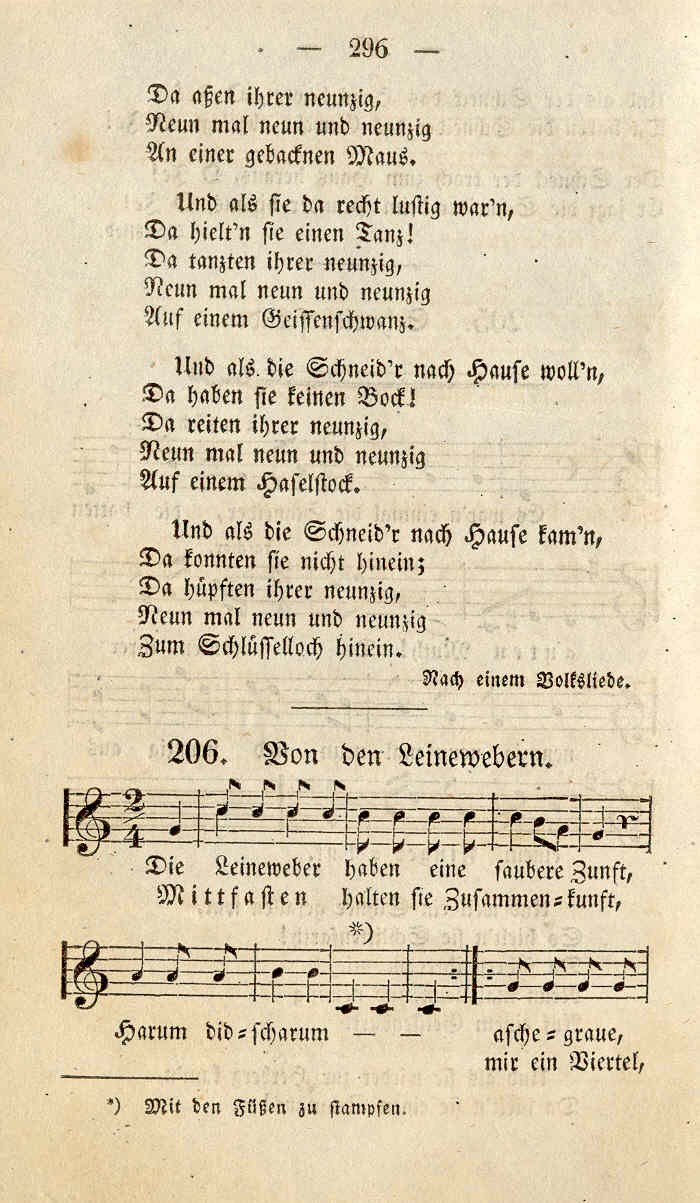 — 296 —
Da aßen ihrer neunzig,
Neun mal neun und neunzig
An einer gebacknen Maus.
Und als sie da recht lustig war'n,
Da hielt'n sie einen Tanz!
Da tanzten ihrer neunzig,
Neun mal neun und neunzig
Auf einem Geissenschwanz.
Und als die Schneid'r nach Hause woll'n,
Da haben sie keinen Bock!
Da reiten ihrer neunzig,
Neun mal neun und neunzig
Auf einem Haselstock.
Und als die Schneid'r nach Hause kam'n,
Da konnten sie nicht hinein;
Da hüpften ihrer neunzig,
Neun mal neun und neunzig
Zum Schlüsselloch hinein.
Nach einem Volksliede.
206. Von den Leinewebern.
2/4
Die Leineweber haben eine saubere Zunft,
Mittfasten halten sie Zusammen=kunft,
*)
Harum did=scharum — — asche=graue,
mir ein Viertel,
*) Mit den Füßen zu stampfen.